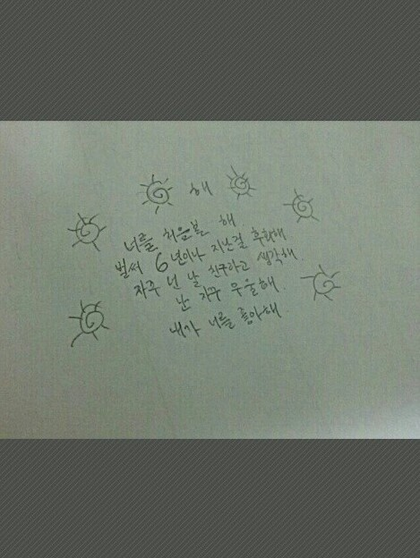 해
너를 처음본 해
벌써 6년이나 지난걸 후회해
자주 넌 날 친구라고 생각해
난 자꾸 우울해
내가 너를 좋아해